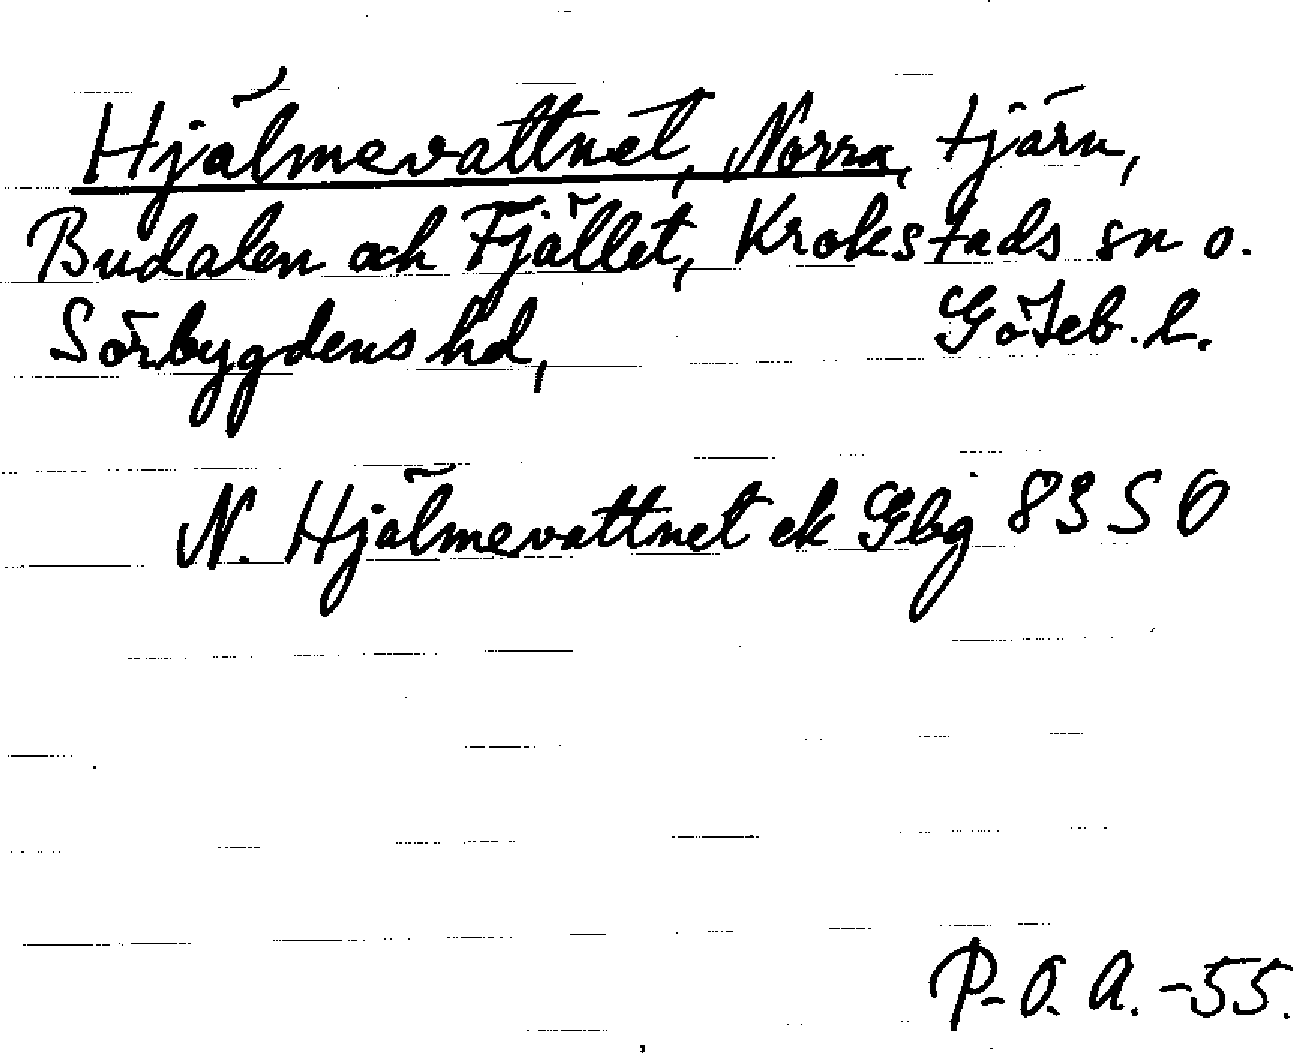 Hjälmevattnet, Norra, tjärn,
Budalen och Fjället, Krokstads sn o.
Sörbygdens hd, Göteb. l.
N. Hjälmevattnet ek Gbg 8350
P-O. A. -55.